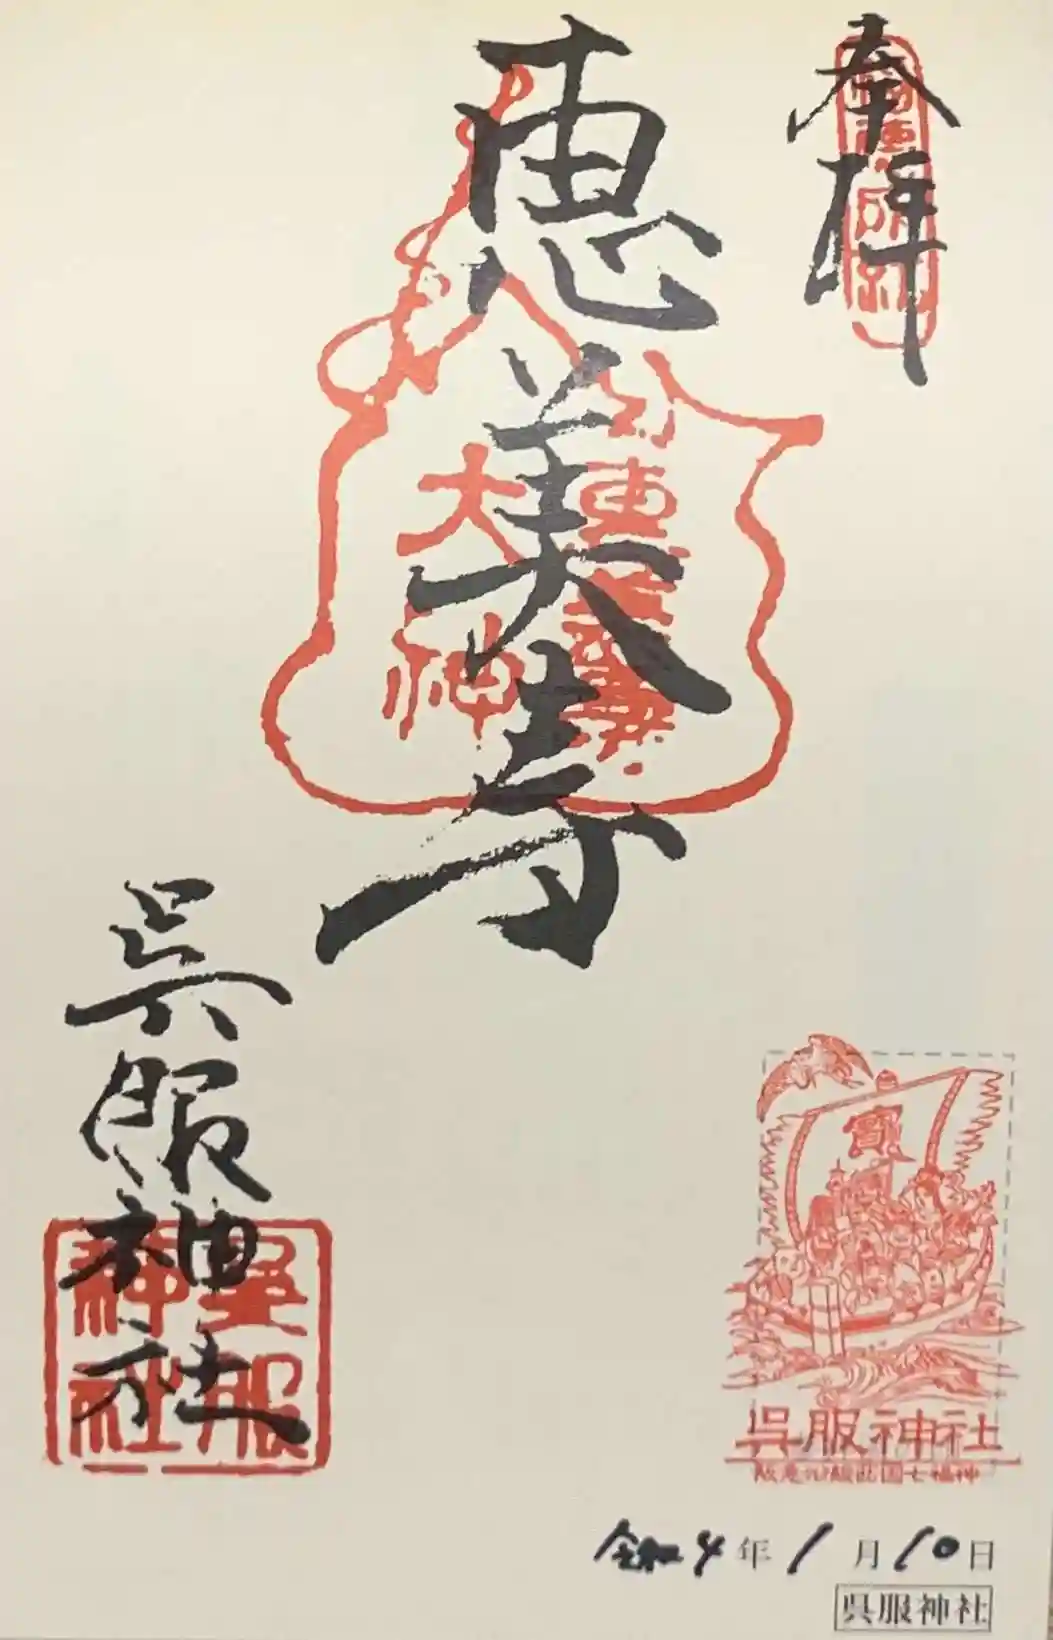 奉拝
恵美寿
大神
呉服神社
呉服
神社
寳
呉服神社
阪急沿線西国七福神
令和4年1月10日
呉服神社